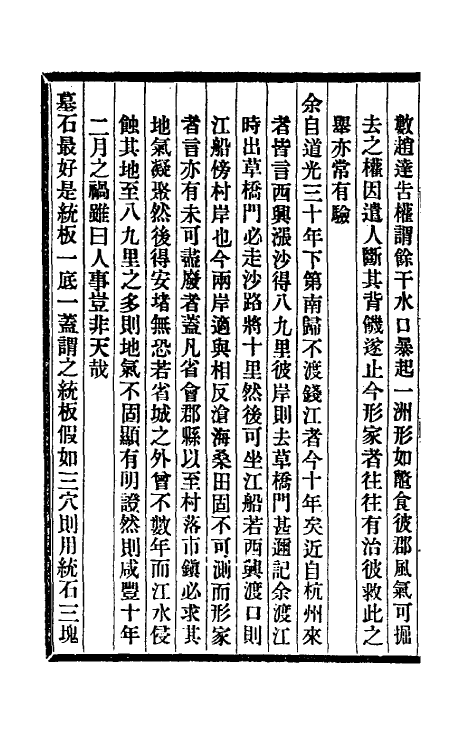 數趙達告權謂餘干水口暴起一洲形如鼈食彼郡風氣可掘
去之權因遣人斷其背饑遂止今形家者往往有治彼救此之
舉亦常有驗
余自道光三十年下第南歸不渡錢江者今十年矣近自杭州來
者皆言西興漲沙得八九里彼岸則去草橋門甚邇記余渡江
時出草橋門必走沙路將十里然後可坐江船若西興渡口則
江船傍村岸也今兩岸適與相反滄海桑田固不可測而形家
者言亦有未可盡廢者蓋凡省會郡縣以至村落市鎮必求其
地氣凝聚然後得安堵無恐若省城之外曾不數年而江水侵
蝕其地至八九里之多則地氣不固顯有明證然則咸豐十年
二月之禍雖曰人事豈非天哉
墓石最好是統板一底一蓋謂之統板假如三穴則用統石三塊